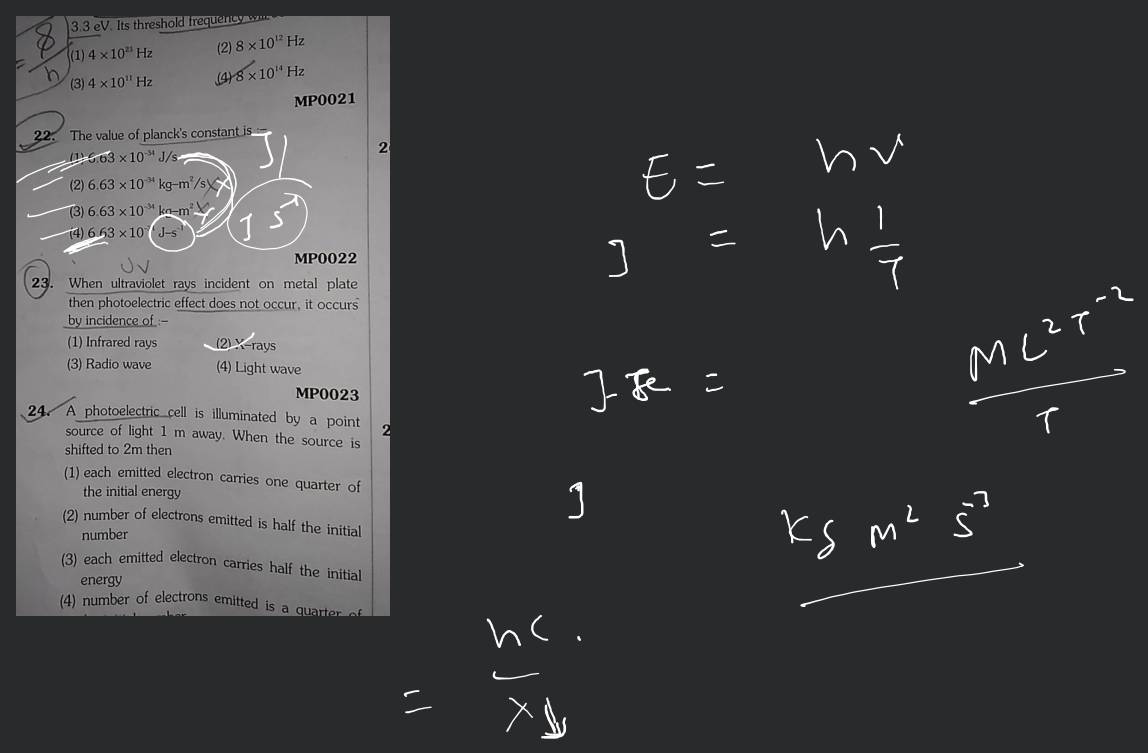 3.3 eV. Its threshold frequency will
(1) 4 ×10²¹ Hz
(2) 8 ×10¹² Hz
(3) 4 ×10¹¹ Hz
(4) 8 ×10¹⁴ Hz
8
=
h
MP0021
22. The value of planck's constant is :–
(1) 6.63 ×10⁻³⁴ J/s
(2) 6.63 ×10⁻³⁴ kg–m²/s
(3) 6.63 ×10⁻³⁴ kg–m²
(4) 6.63 ×10 J–s⁻¹
J
MP0022
UV
23. When ultraviolet rays incident on metal plate
then photoelectric effect does not occur, it occurs
by incidence of :–
(1) Infrared rays
(2) X–rays
(3) Radio wave
(4) Light wave
MP0023
24. A photoelectric cell is illuminated by a point
source of light 1 m away. When the source is
shifted to 2m then
(1) each emitted electron carries one quarter of
the initial energy
(2) number of electrons emitted is half the initial
number
(3) each emitted electron carries half the initial
energy
(4) number of electrons emitted is a quarter of
2
2
E = hν
J = h 1/T
J = ML²T⁻²
T
J
Kg m² s⁻³
= hc
λ↓